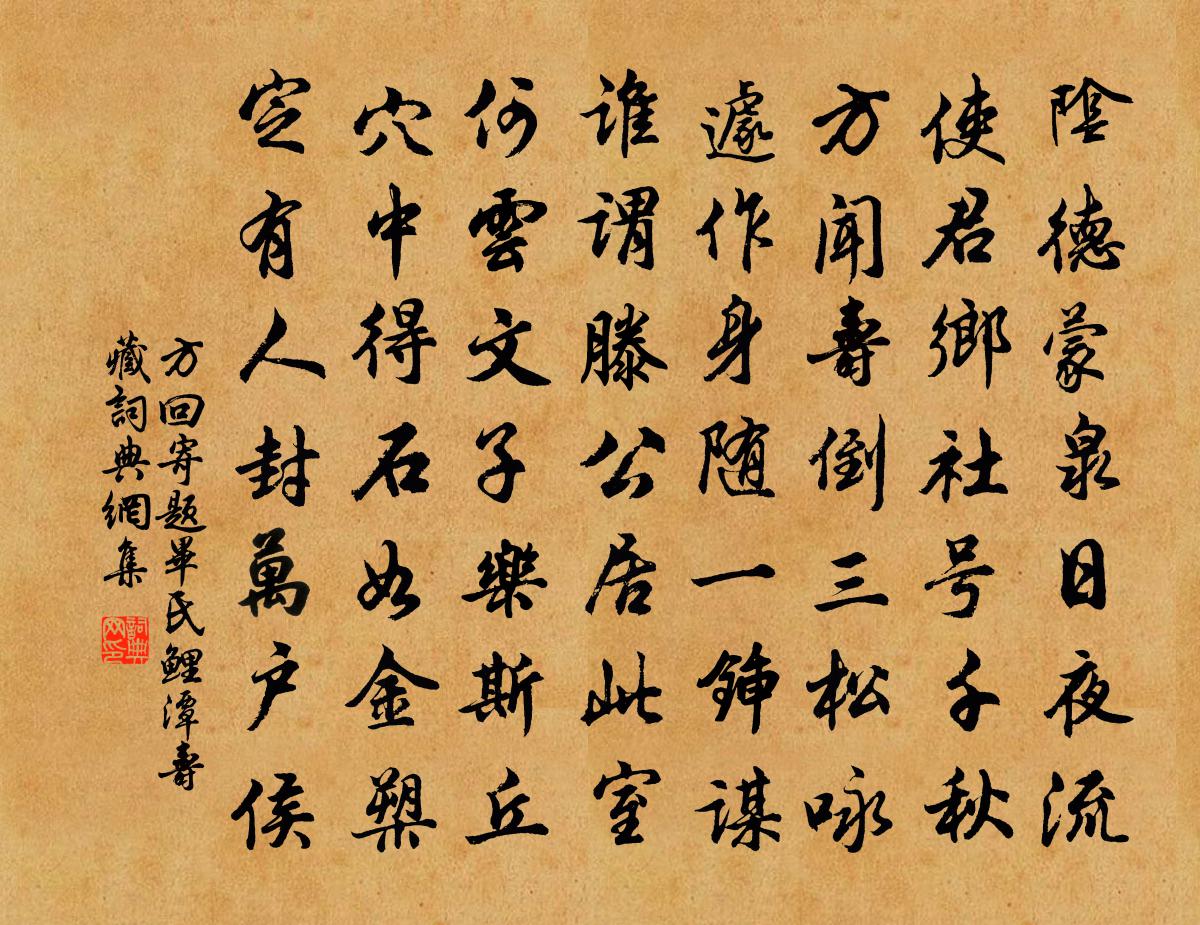 陰德蒙泉日夜流
使君鄉社号千秋
方闻壽倒三松咏
遽作身随一鍤謀
谁谓滕公居此室
何雲文子樂斯丘
穴中得石如金槊
定有人封萬户侯
方回寄題畢氏鯉潭壽
藏詞典網集
詞典網印